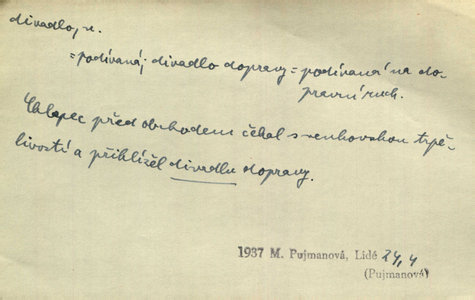 divadlo, n.
= podívaná; divadlo dopravy = podívaná na do-
pravní ruch.
Chlapec před obchodem čekal s venkovskou trpě-
livostí a přihlížel divadlu dopravy.
1937 M. Pujmanová, Lidé 24,4
(Pujmanová)